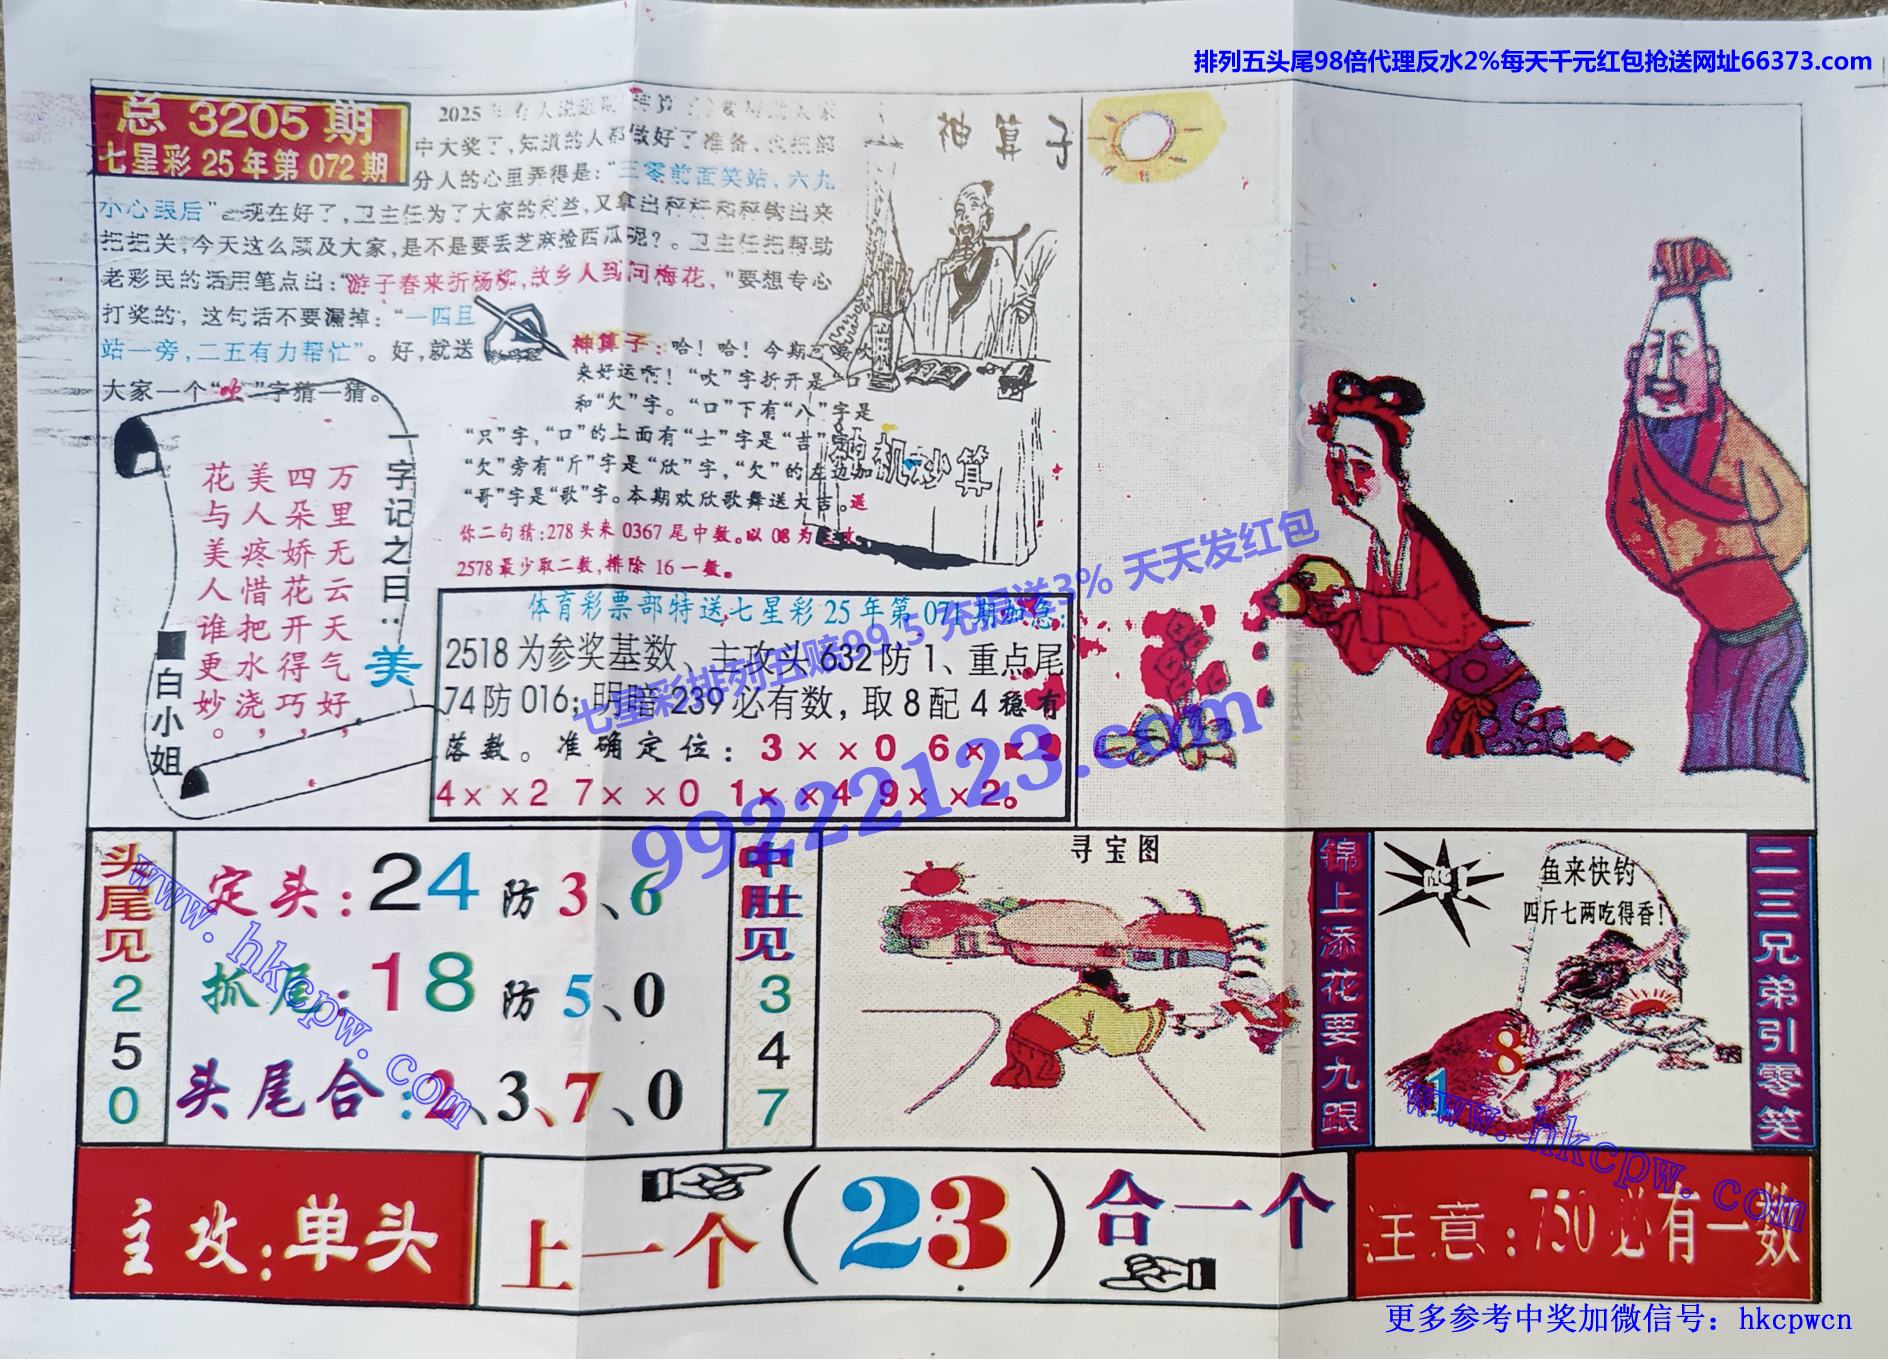 排列五头尾98倍代理反水2%每天千元红包抢送网址66373.com
总 3205 期
七星彩 25 年第 072 期
2025
中大奖了,知道的人都做好了准备,
分人的心里弄得是:“三零前面笑站、六九
小心跟后”。现在好了,卫主任为了大家的利益,又拿出秤杆和秤钩出来
把把关,今天这么顾及大家,是不是要丢芝麻捡西瓜呢?。卫主任把帮助
老彩民的活用笔点出:“游子春来折杨柳,故乡人到问梅花,"要想专心
打奖的,这句话不要漏掉:“一四且
站一旁,二五有力帮忙”。好,就送
大家一个“吹”字猜一猜。
神算子
神算子:哈!哈!今期 要吹
来好运啊!“吹”字折开是“口”
和“欠”字。“口”下有“八”字是
“只”字,“口”的上面有“士”字是“吉”字
“欠”旁有“斤”字是“欣”字,“欠”的左边加
“哥”字是“歌”字。本期欢欣歌舞送大吉。送
你二句猜:278头来0367尾中数。以08为主攻,
2578最少取二数,排除16一数。
机妙算
一字记之曰:美
万里无云天气好,
四朵娇花开得巧,
美人疼惜把水浇,
花与美人谁更妙。
白小姐
体育彩票部特送七星彩25年第071期加急:
2518为参奖基数、主攻头632防1、重点尾
74防016;明暗239必有数,取8配4稳有
落数。准确定位:3××0 6×
4××2 7××0 1××4 9××2。
七星彩排列五赔99.5 充提送3% 天天发红包
99222123.com
头尾见250
定头:24防3、6
抓尾:18防5、0
头尾合:2、3、7、0
中肚见347
寻宝图
锦上添花要九跟
哗!
鱼来快钓
四斤七两吃得香!
8
1
二三兄弟引零笑
www.hkcpw.com
www.hkcpw.com
主攻:单头
上一个(23)合一个
注意:750必有一数
更多参考中奖加微信号:hkcpwcn